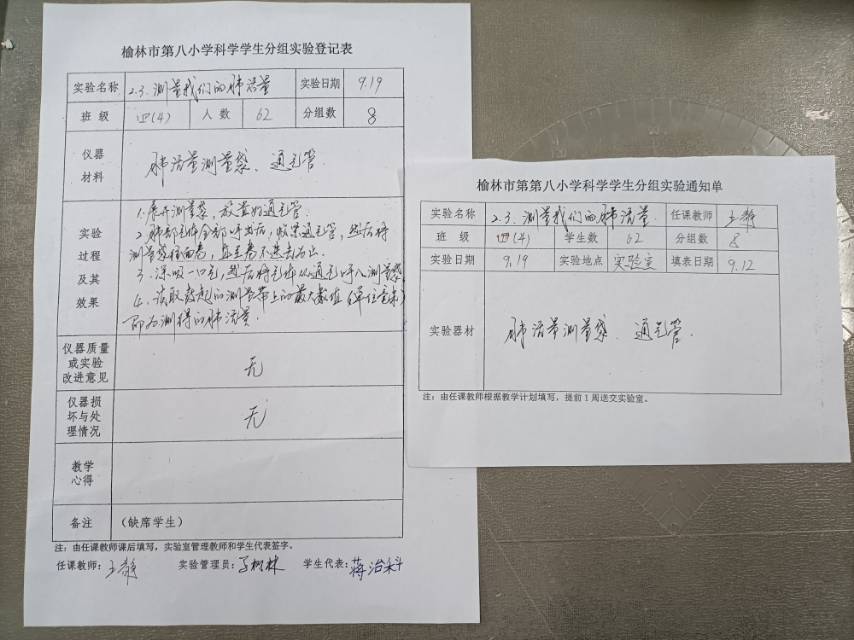 榆林市第八小学科学学生分组实验登记表
实验名称 2.3.测量我们的肺活量 实验日期 9.19
班 级 四(4) 人 数 62 分组数 8
仪器
材料
肺活量测量袋、通气管
实验
过程
及其
效果
1.展开测量袋,放置好通气管.
2.肺部气体全部呼出后,捏紧通气管,然后将
测量袋往前卷,直至卷不进去为止.
3.深吸一口气,然后将气体从通气呼入测量袋
4.读取卷起的测量带上的最大数值(单位毫米)
即为测得的肺活量.
仪器质量
或实验
改进意见
无
仪器损
坏与处
理情况
无
教学
心得
备注 (缺席学生)
注:由任课教师课后填写,实验室管理教师和学生代表签字。
任课教师:王静 实验管理员: 学生代表:蒋治科
榆林市第第八小学科学学生分组实验通知单
实验名称 2.3.测量我们的肺活量. 任课教师 王静
班 级 四(4) 学生数 62 分组数 8
实验日期 9.19 实验地点 实验室 填表日期 9.12
实验器材 肺活量测量袋、通气管.
注:由任课教师根据教学计划填写,提前1周送交实验室。